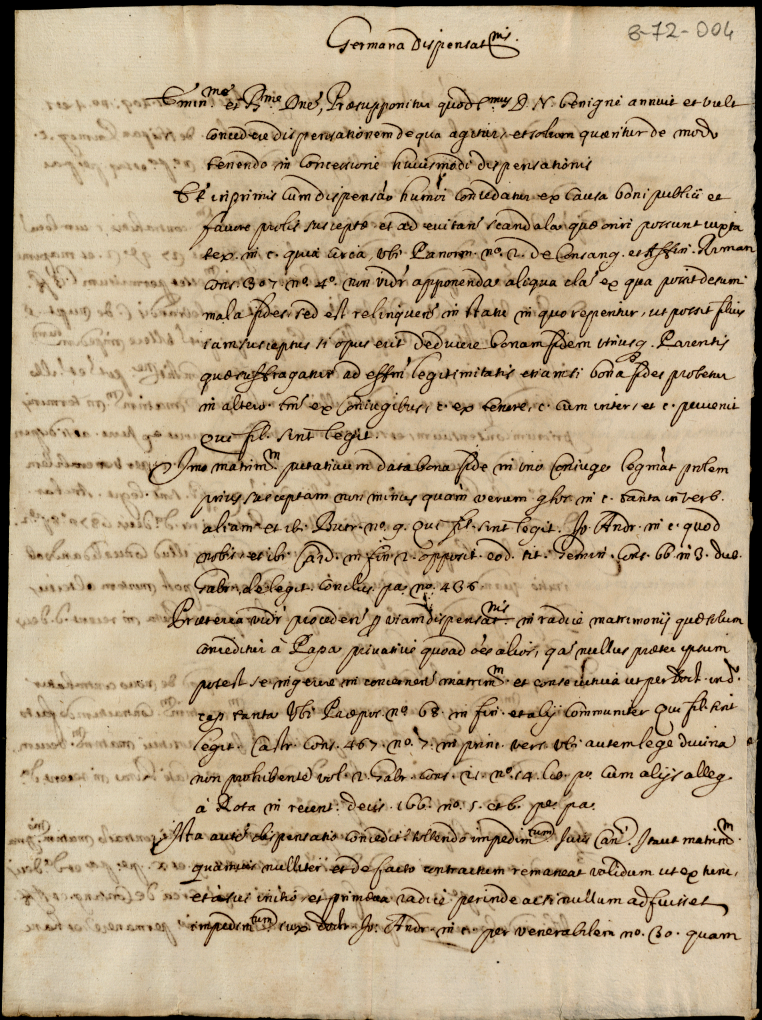 8-72-004
Germana Dispensat.nis
Emin.me et R.me Dne, Præsupponitur quod S.mus D. N. benigne annuit et vult
concedere dispensationem de qua agitur, et solum quæritur de modo
tenendo in concessione huiusmodi dispensationis
Et in primis cum dispensão humõi concedatur ex causa boni publici et
favore prolis susceptæ et ad evitand scandala quæ oriri possunt iuxta
tex. in c. quia circa, ubi Panorm. nº. 2. de Consang. et Affin. Ruinan
cons. 307. nº. 4º. non vidr apponenda aliqua cla. ex qua possit desumi
mala fides, sed est relinquens in statu in quo reperitur, ut possit filius
iam susceptus si opus erit deducere bonam fidem utriusq. Parentis
quæ suffragatur ad effm legitimitatis etiam si bona fides probetur
in altero tm ex coniugibus, c. ex tenore, c. cum inter, et c. pervenit
Qui fil. sint legit.
Imo matrim.m putativum data bona fide in uno coniuge legmat prolem
prius susceptam non minus quam verum glos. in c. tanta in verb.
aliam et ib. Butr. nº. 9. Qui fil. sint legit. Jo. Andr. in c. quod
nobis, et ibi Card. in fin 2. opposit. eod. tit. Gemin. cons. 66. nº 3.
Gabr. de legit. conclus. pa. nº. 436
Præterea vidr procedere p viam dispensat.nis in radice matrimonij quæ solum
conceditur à Papa privative quoad oẽs alios, qa nullus præter ipsum
potest se ingerere in concernen matrim.m et consecutiva ut per Doct. in d.
cap. tanta ubi Præpos. nº 68. in fin. et alij communiter Qui fil. sint
legit. Castr. cons. 467. nº. 7. in princ. vers. ubi autem lege divina
non prohibente vol. 2. Gabr. cons. 21. nº. 14. lib. po. cum alijs alleg.
à Rota in recent. decis. 166. nº. 5. et 6. pe. pa.
Ista autẽ dispensatio conceditr tollendo impedim.tum Juris Can.ci Itaut matrim.m
quamvis nulliter et de facto contractum remaneat validum ut ex tunc,
et à sui initio, et primæva radice perinde ac si nullum adfuisset
impedim.tum iux. Jo. Andr. in c. per venerabilem nº. 30. quam